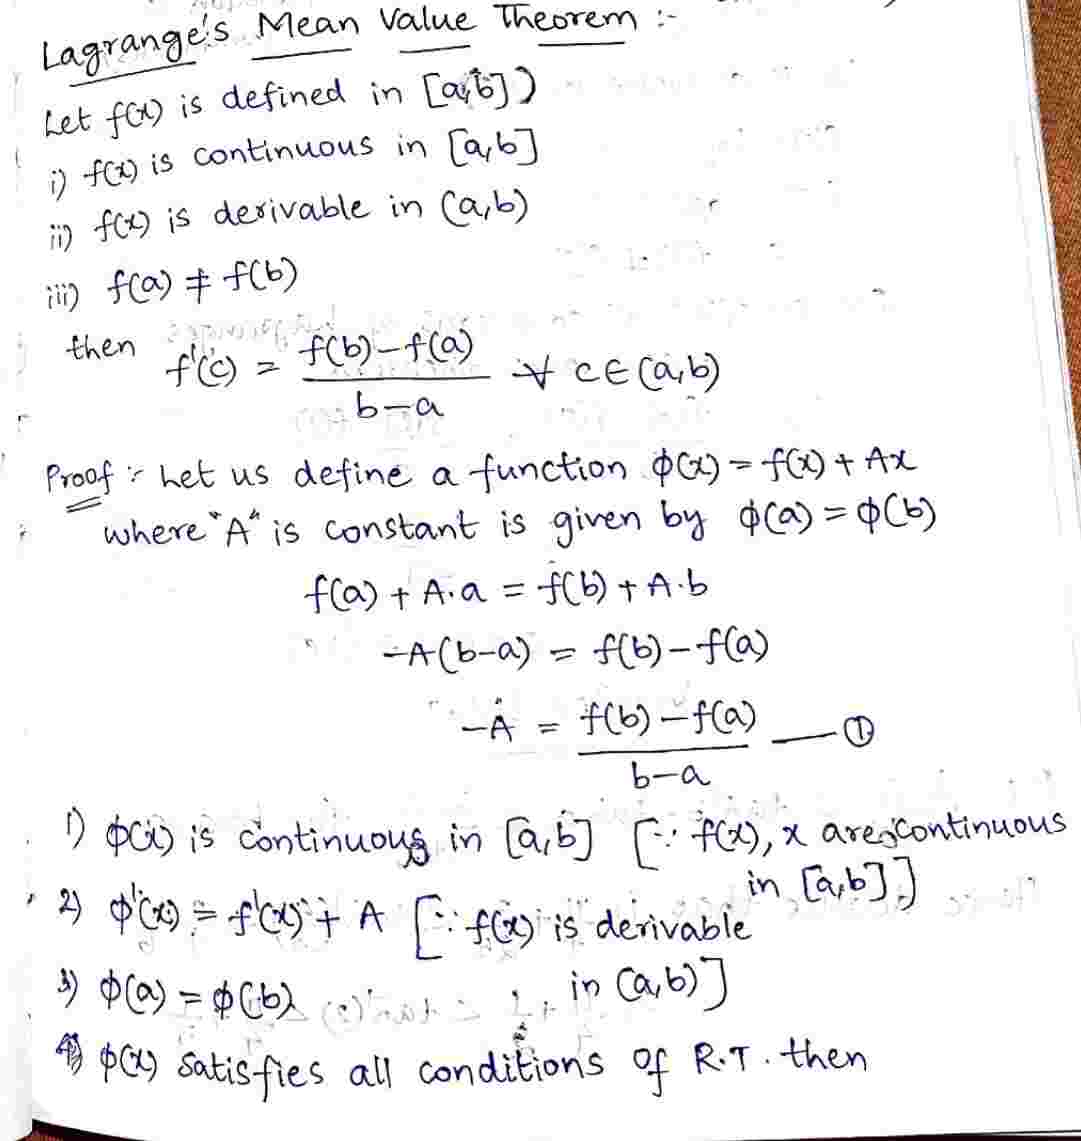 Lagrange's Mean Value Theorem :-
Let f(x) is defined in [a,b])
i) f(x) is continuous in [a,b]
ii) f(x) is derivable in (a,b)
iii) f(a) ≠ f(b)
then f'(c) = f(b)-f(a) / b-a ∀ c∈(a,b)
Proof :- Let us define a function φ(x) = f(x) + Ax
where "A" is constant is given by φ(a) = φ(b)
f(a) + A·a = f(b) + A·b
-A(b-a) = f(b)-f(a)
-A = f(b)-f(a) / b-a —— ①
1) φ(x) is continuous in [a,b] [∵ f(x), x are continuous
in [a,b]]
2) φ'(x) = f'(x) + A [∵ f(x) is derivable
in (a,b)]
3) φ(a) = φ(b)
4) φ(x) satisfies all conditions of R.T. then